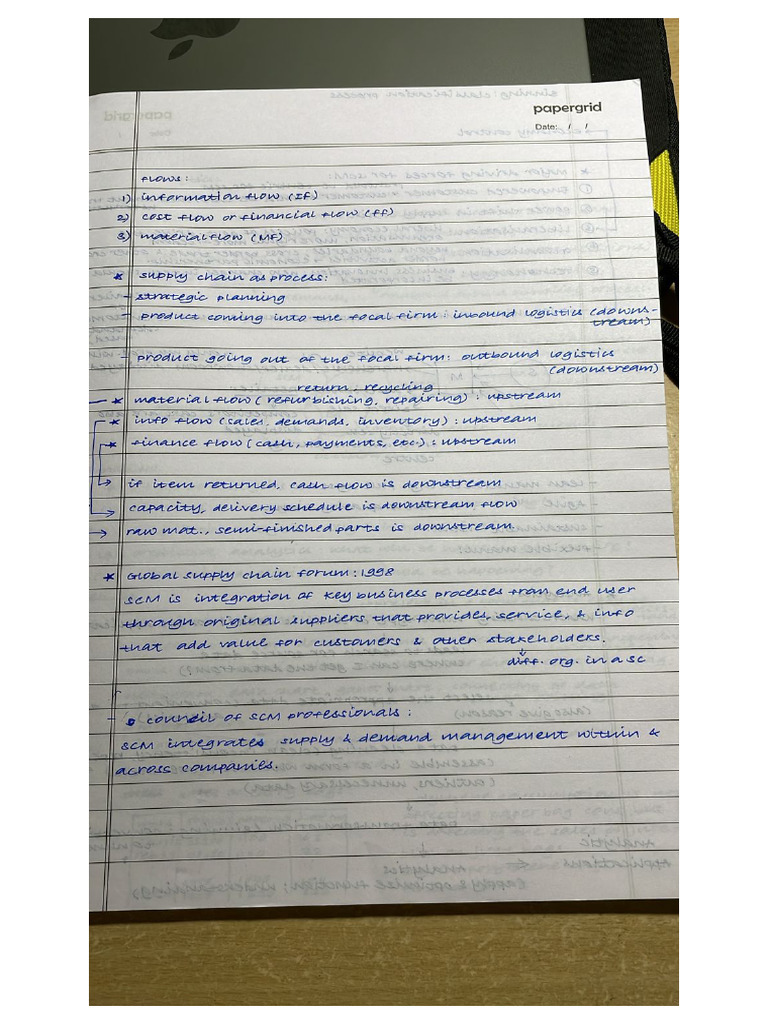 papergrid
Date: / /
flows:
1) information flow (If)
2) cost flow or financial flow (ff)
3) material flow (Mf)
* supply chain as process:
- strategic planning
- product coming into the focal firm: inbound logistics (downs-
tream)
- product going out of the focal firm: outbound logistics
(downstream)
return, recycling
* material flow (refurbishing, repairing) : upstream
* info flow (sales, demands, inventory) : upstream
* finance flow (cash, payments, etc.) : upstream
→ if item returned, cash flow is downstream
→ capacity, delivery schedule is downstream flow
→ raw mat., semi-finished parts is downstream.
* Global supply chain forum: 1998
SCM is integration of key business processes from end user
through original suppliers that provides, service, & info
that add value for customers & other stakeholders.
↓
diff. org. in a sc
council of SCM professionals:
SCM integrates supply & demand management within &
across companies.